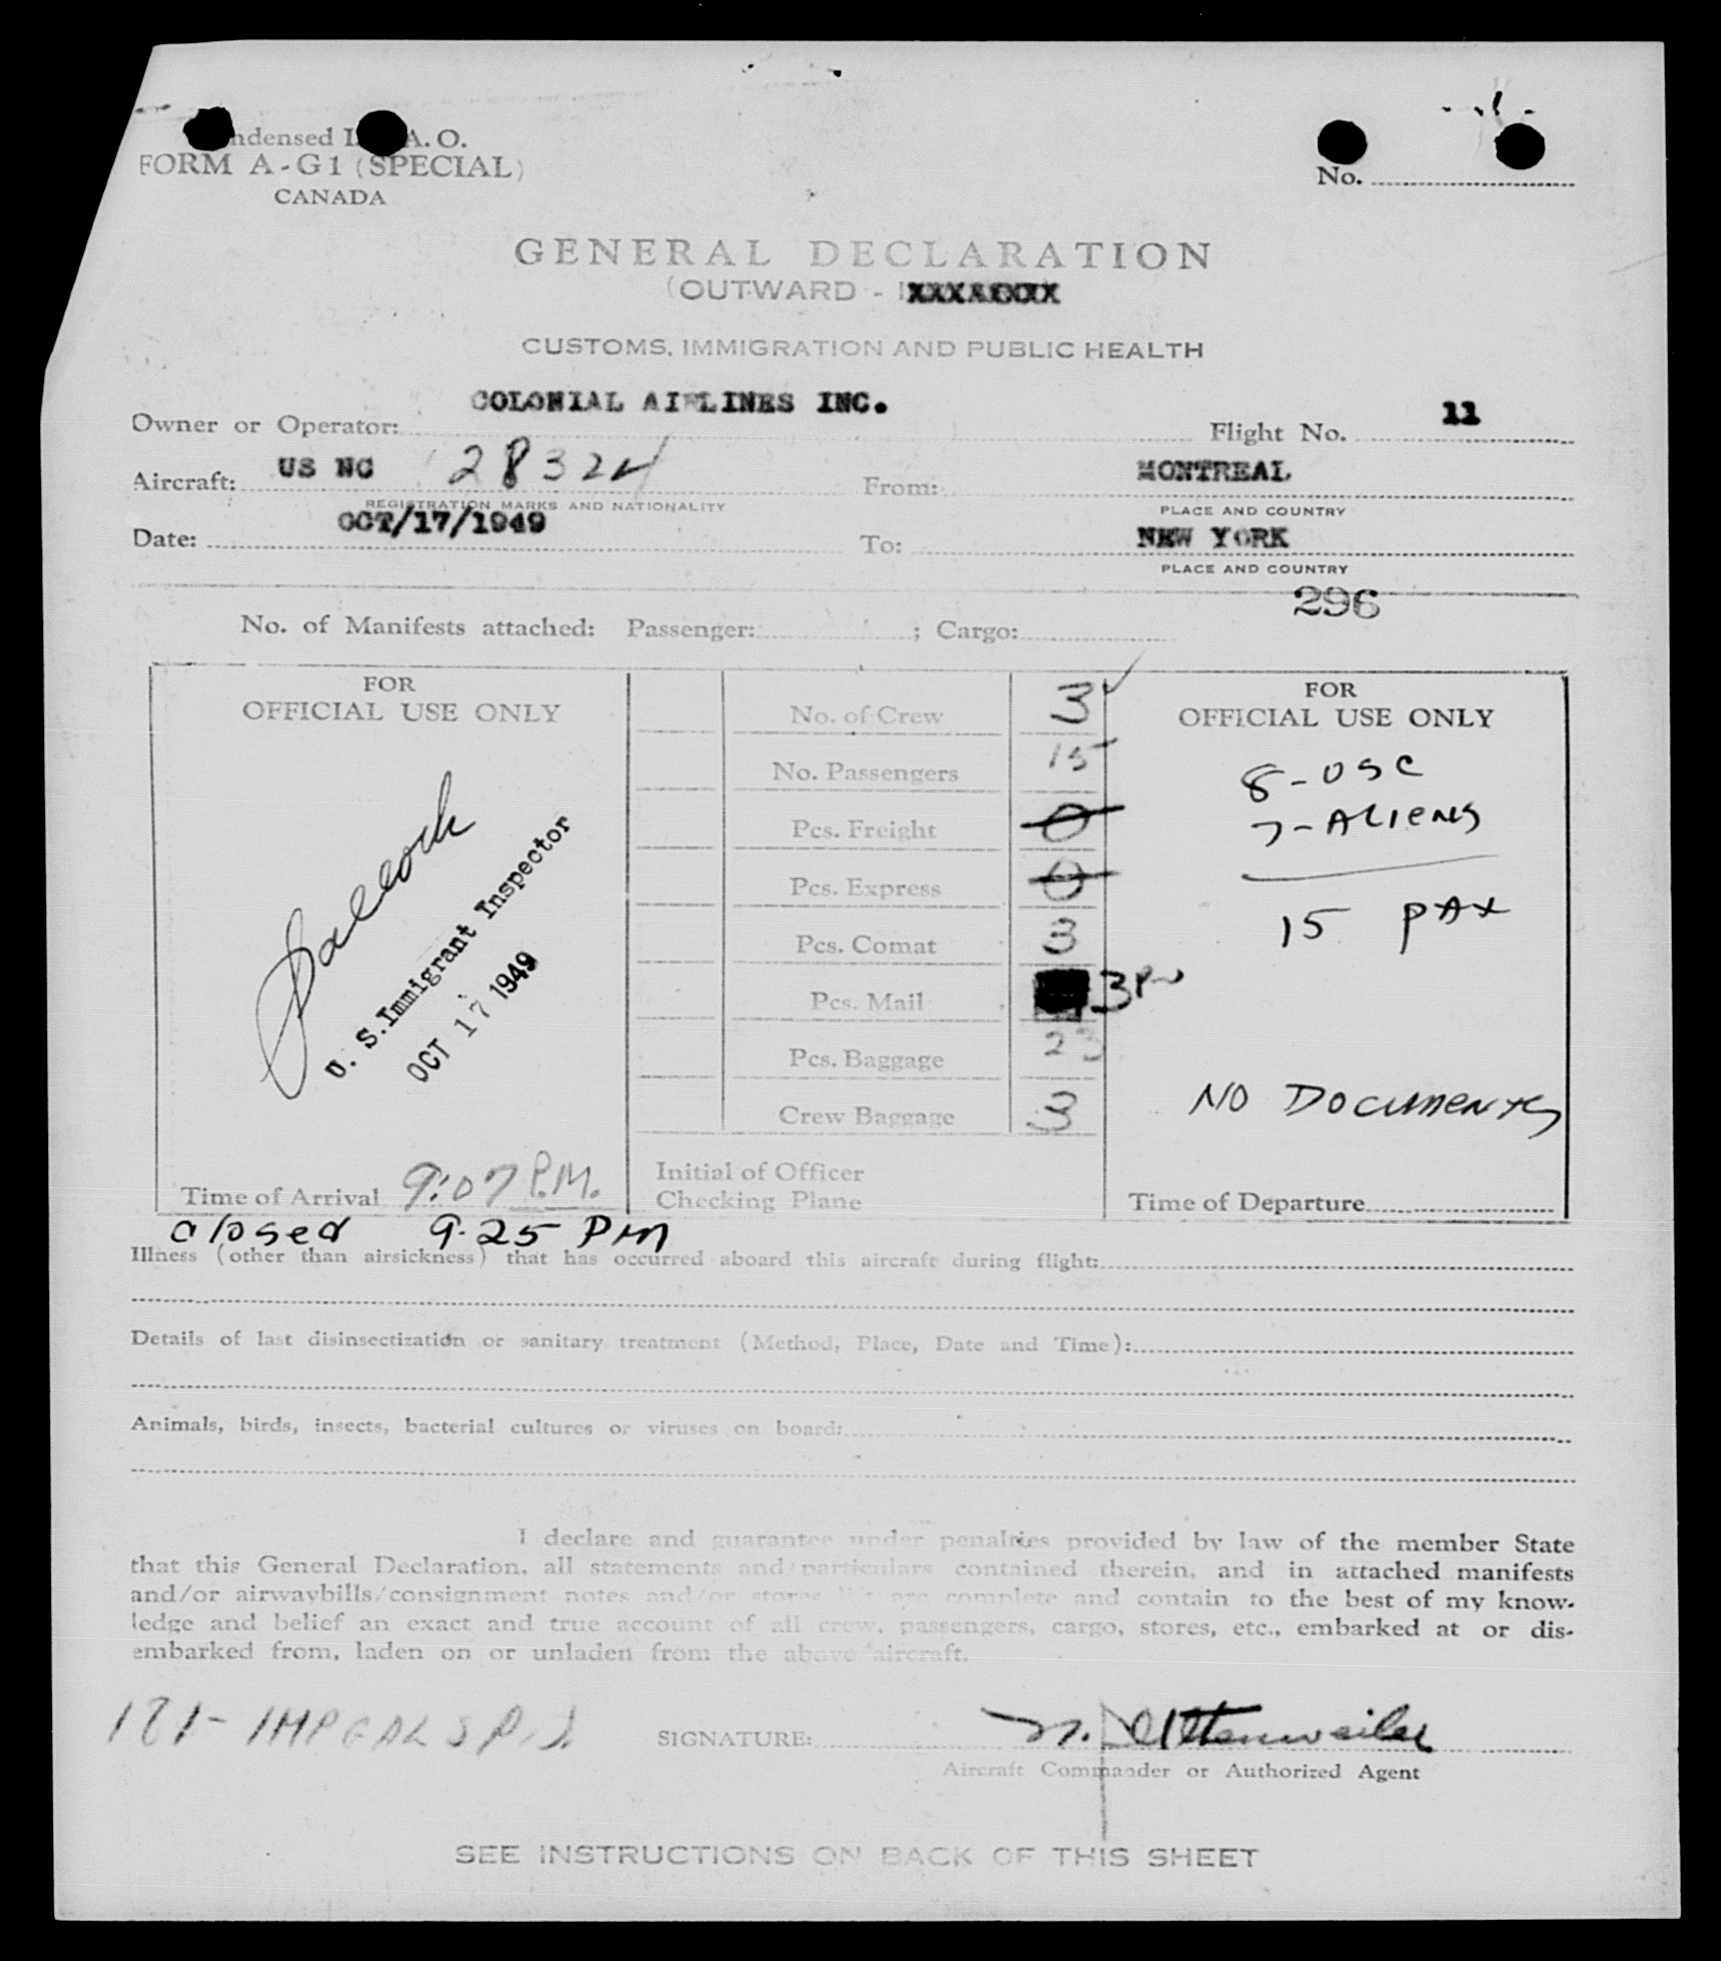 ndensed I. A. O.
FORM A-G1 (SPECIAL)
CANADA
No.
GENERAL DECLARATION
(OUTWARD - IXXXXXXXX
CUSTOMS, IMMIGRATION AND PUBLIC HEALTH
Owner or Operator: COLONIAL AIRLINES INC. Flight No. 11
Aircraft: US NC 28324 From: MONTREAL
REGISTRATION MARKS AND NATIONALITY PLACE AND COUNTRY
Date: OCT/17/1949 To: NEW YORK
PLACE AND COUNTRY
296
No. of Manifests attached: Passenger: ; Cargo:
FOR
OFFICIAL USE ONLY
U. S. Immigrant Inspector
OCT 17 1949
Time of Arrival 9:07 P.M.
closed 9.25 PM
No. of Crew 3
No. Passengers 15
Pcs. Freight 0
Pcs. Express 0
Pcs. Comat 3
Pcs. Mail 3
Pcs. Baggage 23
Crew Baggage 3
Initial of Officer
Checking Plane
FOR
OFFICIAL USE ONLY
8-USC
7-ALIENS
15 PAX
NO DOCUMENTS
Time of Departure
Illness (other than airsickness) that has occurred aboard this aircraft during flight:
Details of last disinsectization or sanitary treatment (Method, Place, Date and Time):
Animals, birds, insects, bacterial cultures or viruses on board:
I declare and guarantee under penalties provided by law of the member State
that this General Declaration, all statements and particulars contained therein, and in attached manifests
and/or airwaybills/consignment notes and/or stores list are complete and contain to the best of my know-
ledge and belief an exact and true account of all crew, passengers, cargo, stores, etc., embarked at or dis-
embarked from, laden on or unladen from the above aircraft.
SIGNATURE:
Aircraft Commander or Authorized Agent
SEE INSTRUCTIONS ON BACK OF THIS SHEET